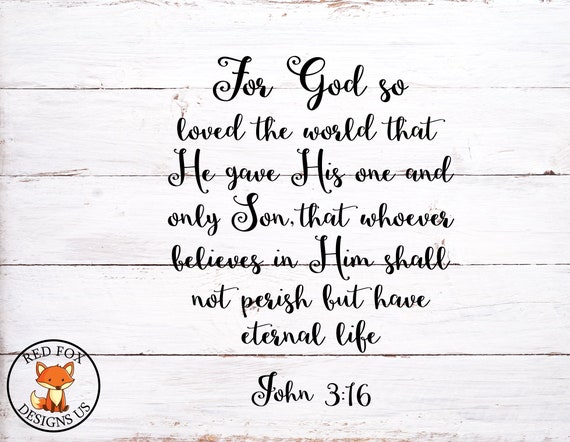 For God so
loved the world that
He gave His one and
only Son, that whoever
believes in Him shall
not perish but have
eternal life
John 3:16
RED FOX
DESIGNS US